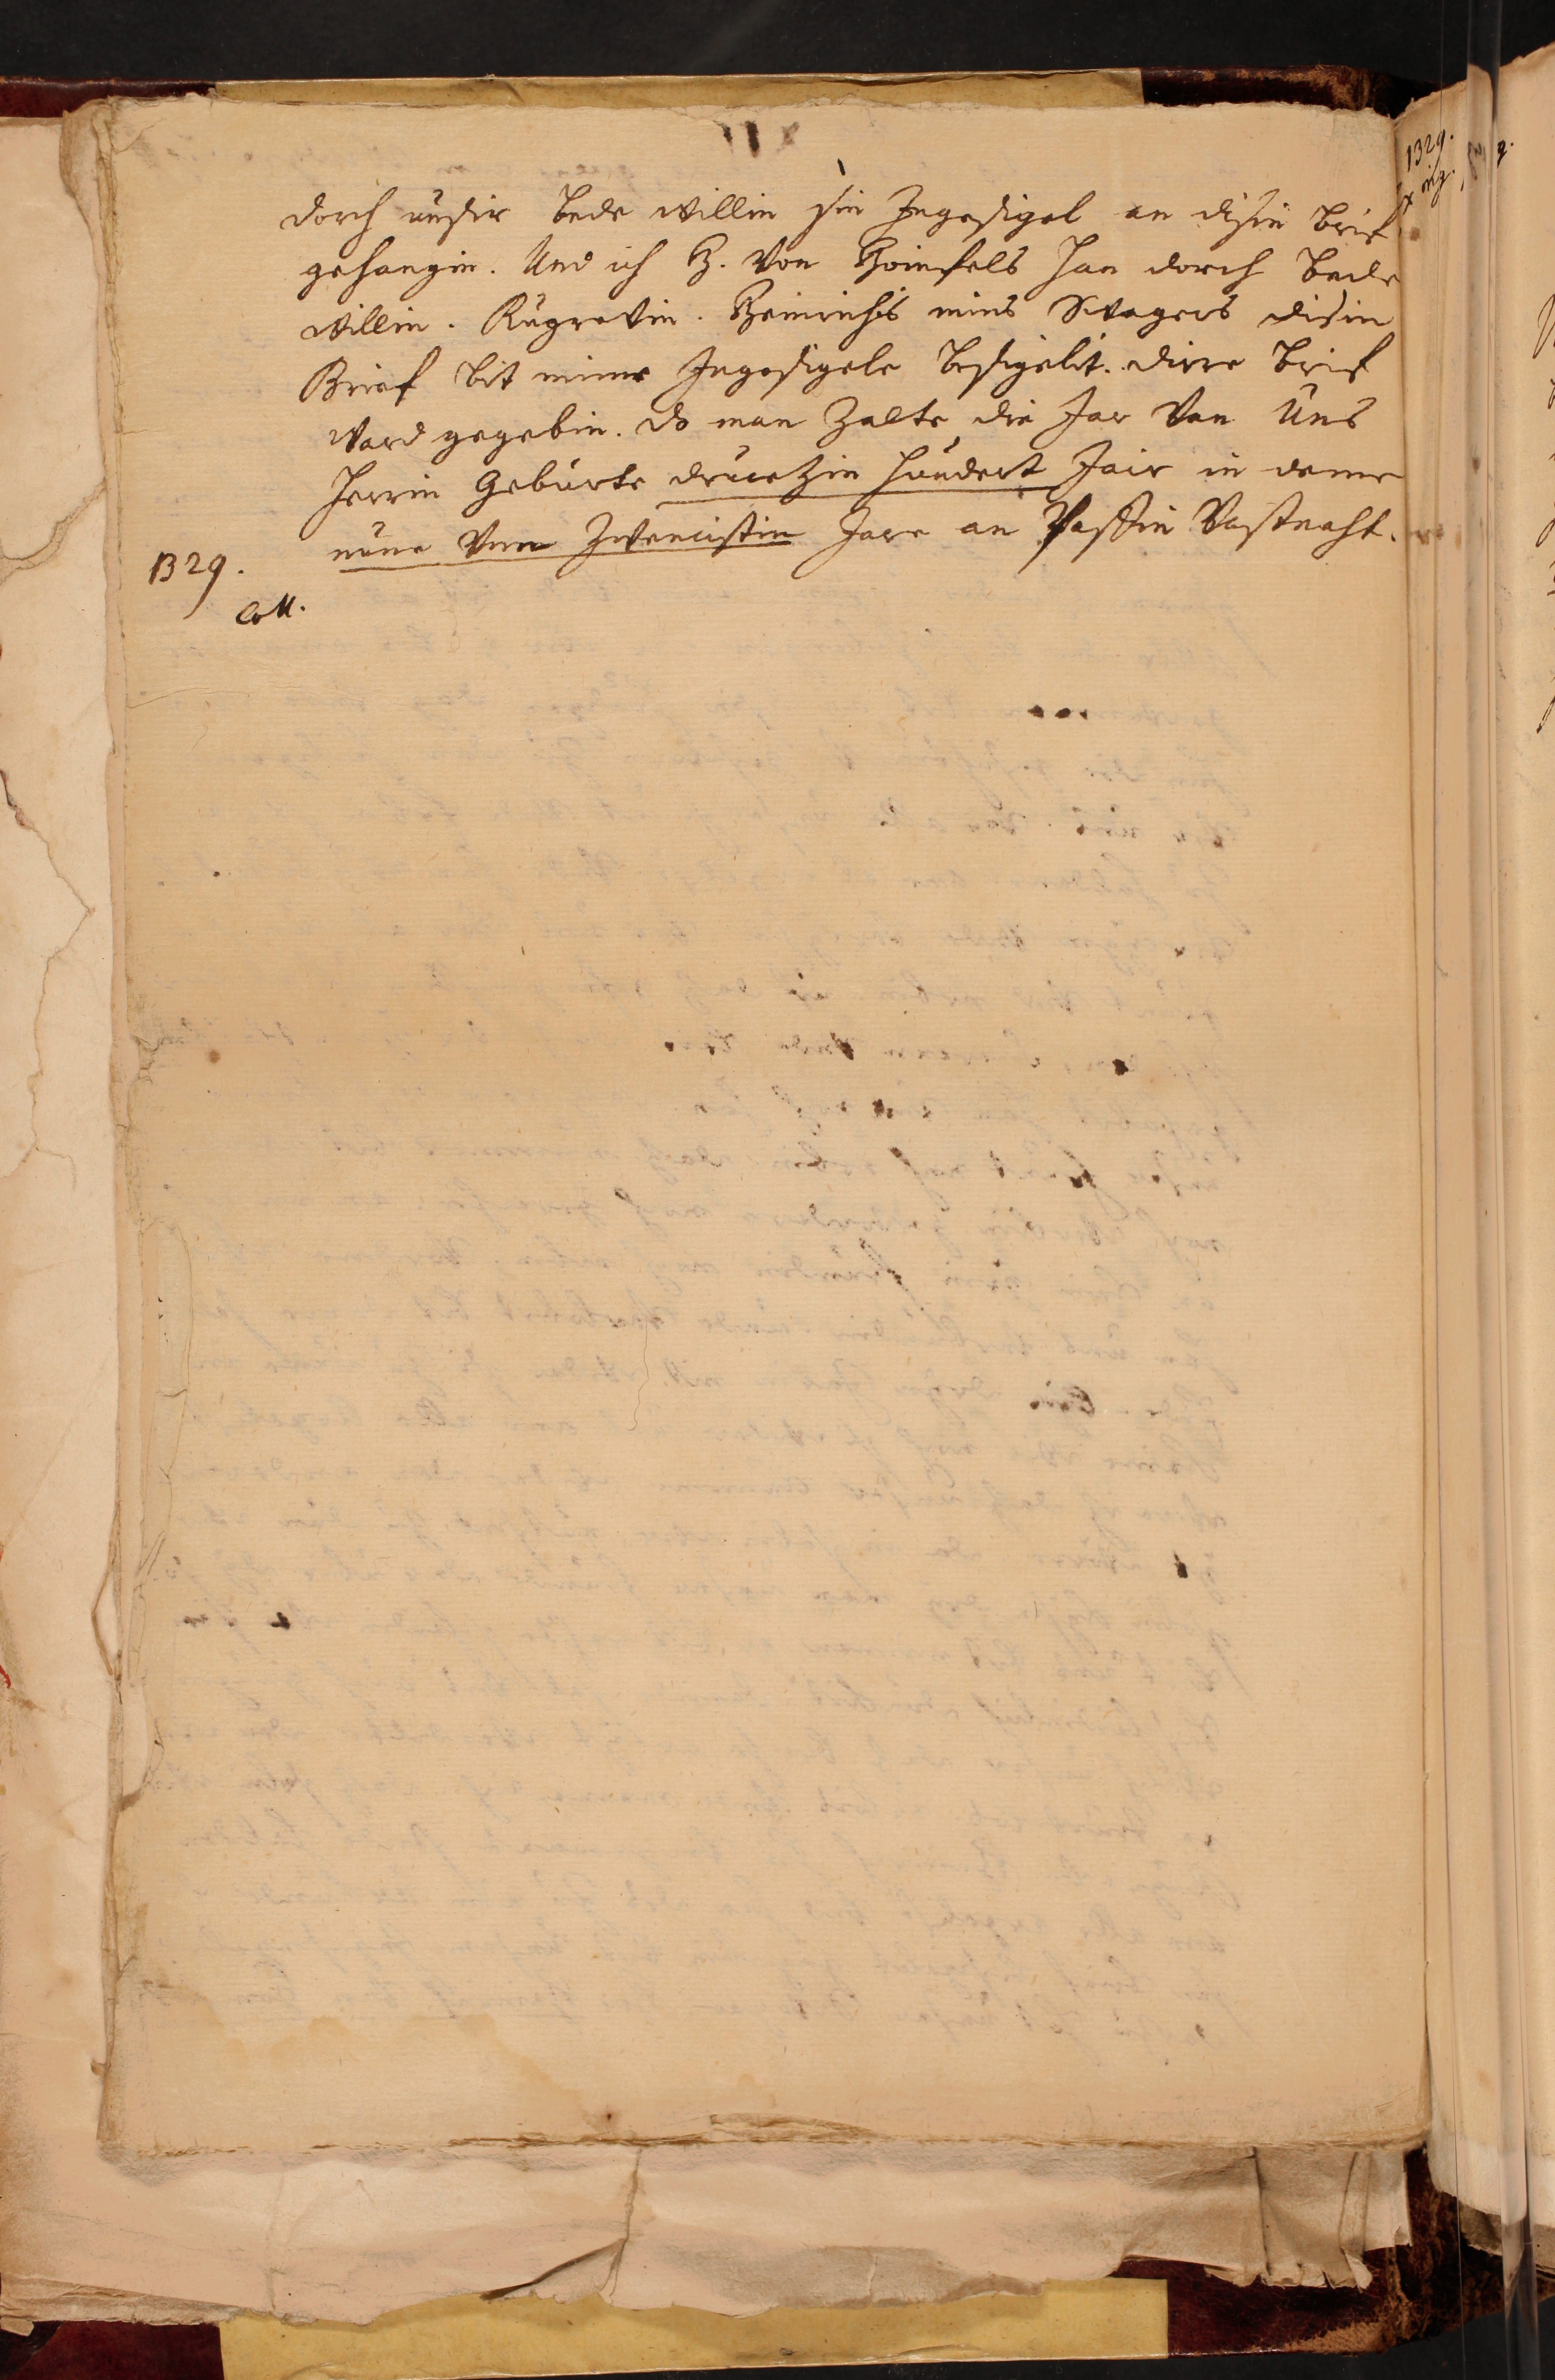 dorch unsir bede willin sin Ingesigel an disin brief
gehangin. Und ich H. von Hoinfels han dorch bede
willin. Rugrevin. Heinrichs mins Swagers disin
Brief bit mime Ingesigele besigelit. dirre brief
ward gegebin. do man zalte die Jar van Uns
Herrin Geburte druuetzin hundert Jair in deme
nune vnn zwencistin Jare an Paffin Vastnaht.
1329.
coll.
1329.